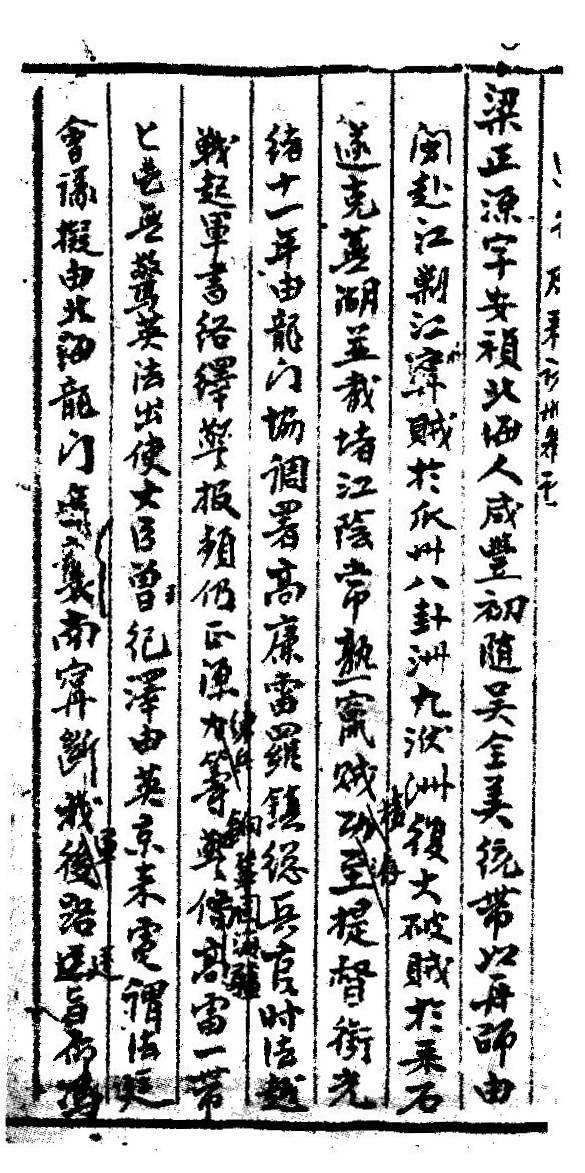 梁正源字安禎北海人咸豐初随吴全美統带以舟師由
閩赴江剿江寧賊於瓜州八卦洲九洑洲復大破賊於采石
遂克蕪湖並截堵江陰常熟竄賊功至提督銜光
緒十一年由龍门協調署高廉雷羅鎮總兵官时法越
戰起軍書絡繹警报頻仍正源力籌警備高雷一带
匕鬯無驚英法出使大臣曾纪澤由英京来電謂法廷
會議擬由北海龍门襲南寧断我後路廷旨命馮